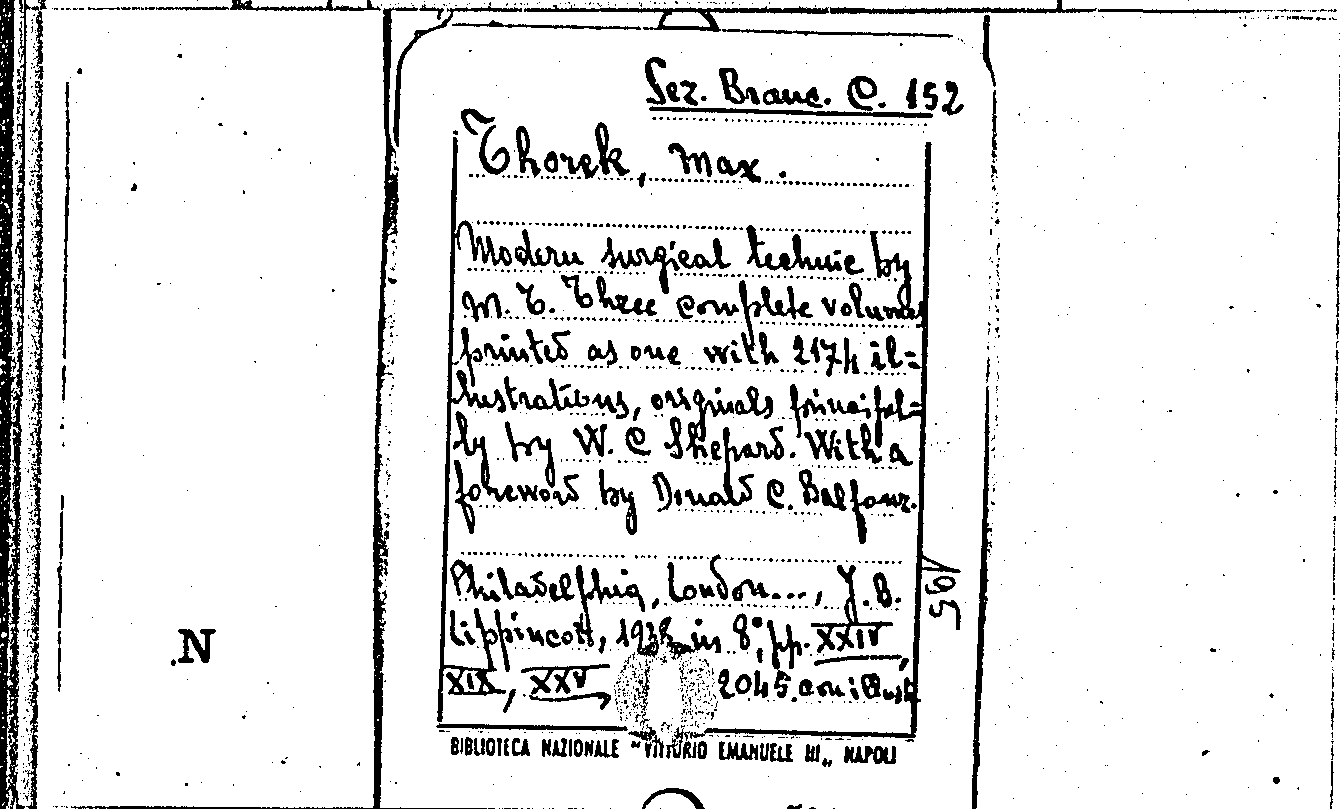 Sez. Branc. C. 152
Thorek, Max.
Modern surgical technic by
M. T. Three complete volumes
printed as one with 2174 il=
lustrations, originals principal=
ly by W. C Shepard. With a
foreword by Donald C. Balfour.
Philadelphia, London..., J. B.
Lippincott, 1938, in 8°, pp. XXIV,
XIX, XXV, 2045. con illustr
.N
BIBLIOTECA NAZIONALE "VITTORIO EMANUELE III„ NAPOLI